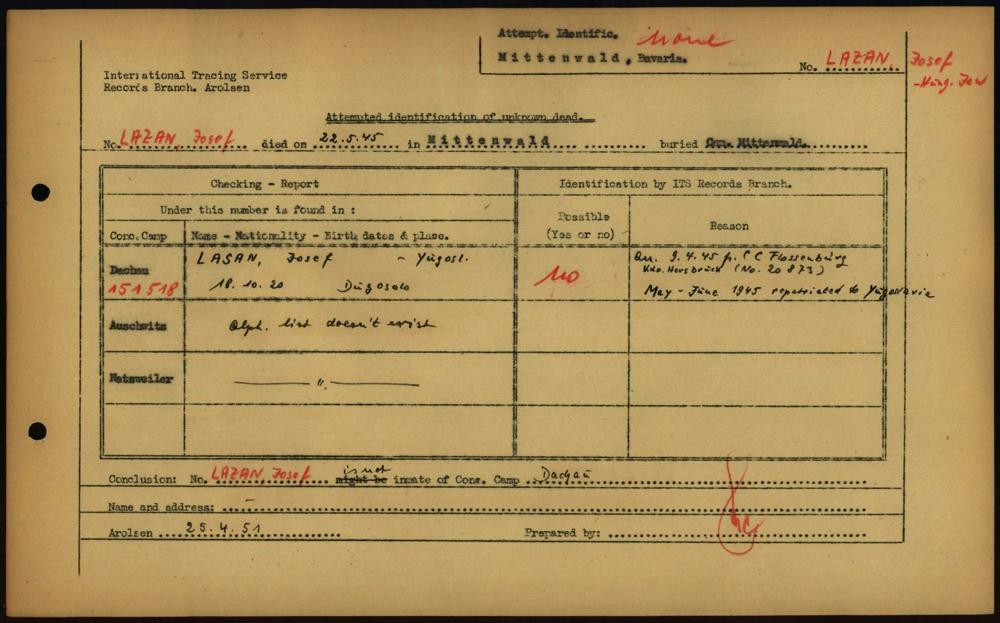 Attempt. Identific. None
Mittenwald, Bavaria.
No. LAZAN, Josef
-Hung. Jew
International Tracing Service
Records Branch. Arolsen
Attempted identification of unknown dead.
No. LAZAN, Josef died on 22.5.45 in Mittenwald buried Cem. Mittenwald.
Checking - Report
Identification by ITS Records Branch.
Under this number is found in :
Possible
(Yes or no)
Reason
Conc. Camp
Name - Nationality - Birth dates & place.
Dachau
151518
LASAN, Josef - Yugosl.
18.10.20 Dugoselo
No
Arr. 9.4.45 fr. CC Flossenbürg
Kdo. Hersbruck (No. 20873)
May - June 1945 repatriated to Yugoslavia
Auschwitz
Alph. list doesn't exist
Natzweiler
— " —
Conclusion: No. LAZAN, Josef is not might be inmate of Conc. Camp Dachau
Name and address: -
Arolsen 25.4.51 Prepared by: